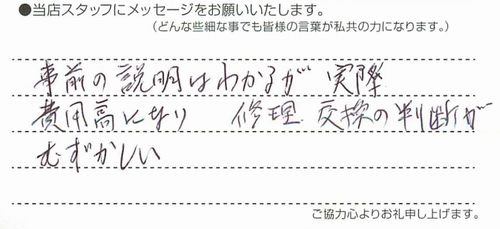 ●当店スタッフにメッセージをお願いいたします。
(どんな些細な事でも皆様の言葉が私共の力になります。)
事前の説明はわかるが 実際
費用高になり 修理.交換の判断が
むずかしい
ご協力心よりお礼申し上げます。